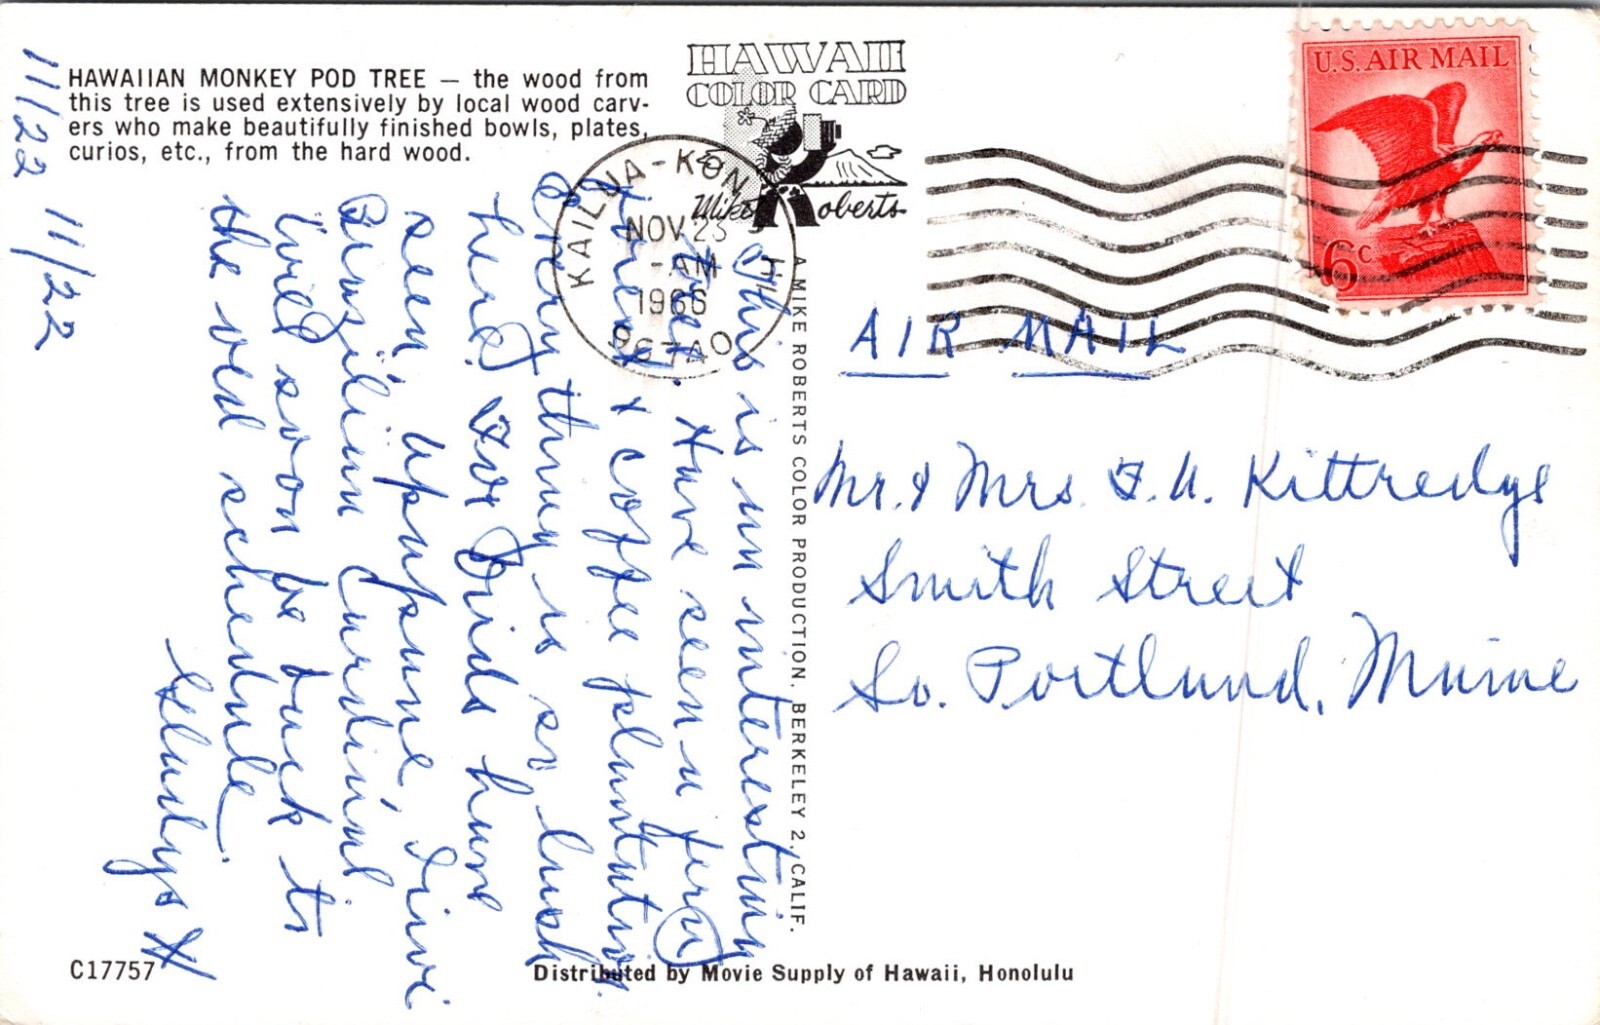 HAWAIIAN MONKEY POD TREE — the wood from
this tree is used extensively by local wood carv-
ers who make beautifully finished bowls, plates,
curios, etc., from the hard wood.
HAWAII
COLOR CARD
Mike Roberts
KAILUA-KONA HI
NOV 23
-AM
1966
96740
U.S. AIR MAIL
6c
AIR MAIL
Mr. & Mrs. F. A. Kittredge
Smith Street
So. Portland, Maine
11/22
11/22
This is an interesting
tree. Have seen a fern
forest & coffee plantation.
Everything is so lush
here. For Birds have
seen Apapane, Iiwi
Brazilian Cardinal
Will soon be back to
the old schedule.
Gladys H
A MIKE ROBERTS COLOR PRODUCTION, BERKELEY 2, CALIF.
C17757
Distributed by Movie Supply of Hawaii, Honolulu